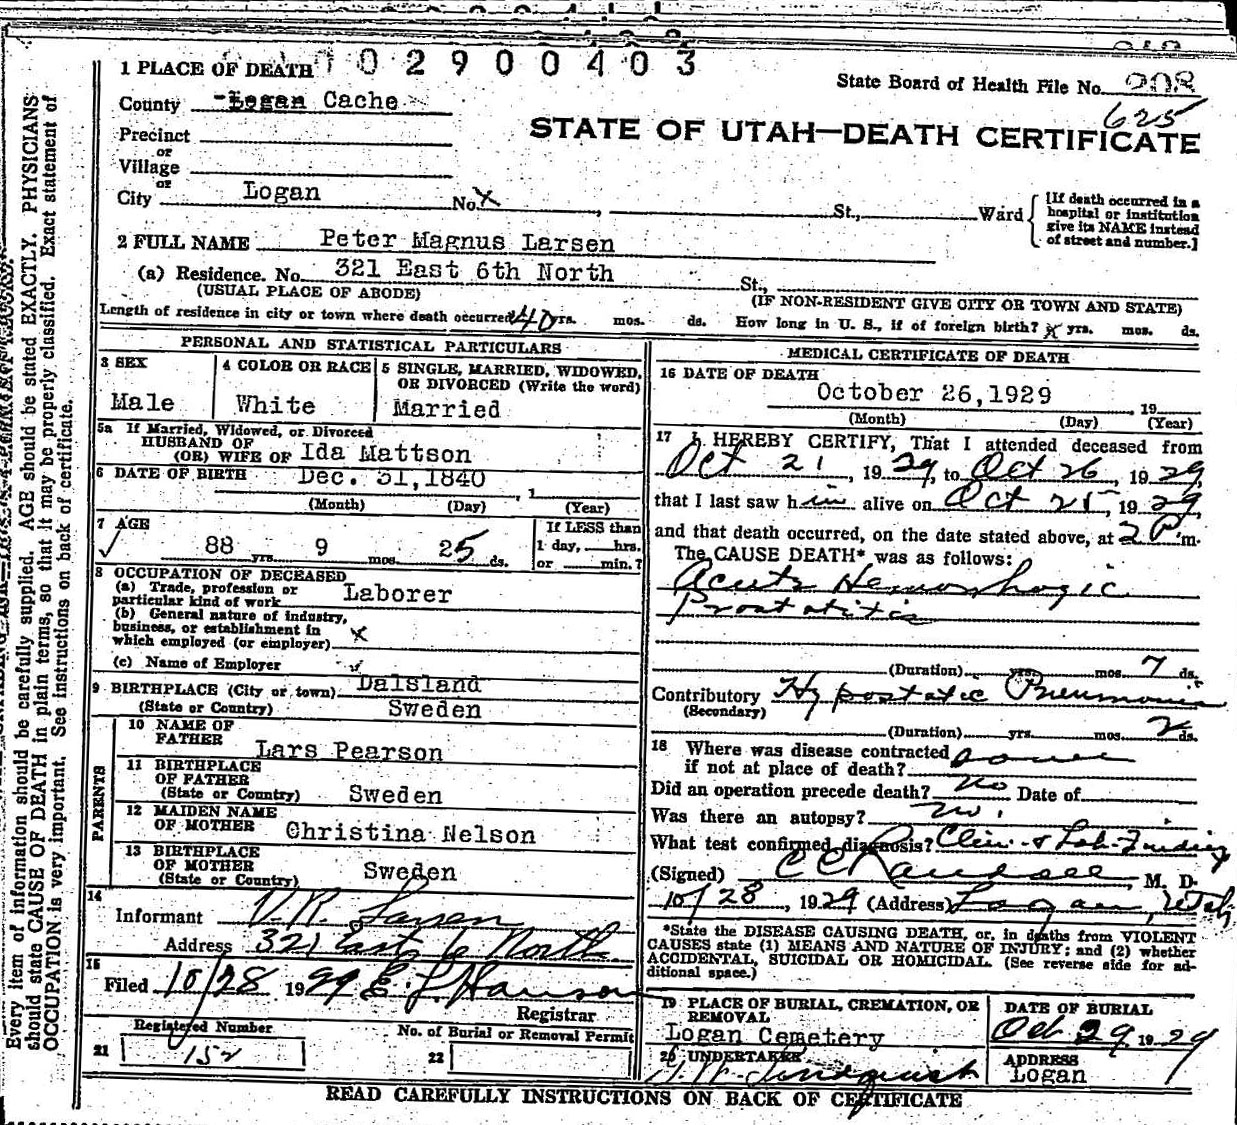 Every item of information should be carefully supplied. AGE should be stated EXACTLY. PHYSICIANS
should state CAUSE OF DEATH in plain terms, so that it may be properly classified. Exact statement of
OCCUPATION is very important. See instructions on back of certificate.
02900403
1 PLACE OF DEATH
State Board of Health File No. 208
625
County Logan Cache
STATE OF UTAH—DEATH CERTIFICATE
Precinct
or
Village
or
City Logan No. X St., Ward
[If death occurred in a
hospital or institution
give its NAME instead
of street and number.]
2 FULL NAME Peter Magnus Larsen
(a) Residence. No. 321 East 6th North St.,
(USUAL PLACE OF ABODE) (IF NON-RESIDENT GIVE CITY OR TOWN AND STATE)
Length of residence in city or town where death occurred 40 yrs. mos. ds. How long in U. S., if of foreign birth? x yrs. mos. ds.
PERSONAL AND STATISTICAL PARTICULARS
3 SEX
Male
4 COLOR OR RACE
White
5 SINGLE, MARRIED, WIDOWED,
OR DIVORCED (Write the word)
Married
5a If Married, Widowed, or Divorced
HUSBAND OF
(OR) WIFE OF Ida Mattson
6 DATE OF BIRTH Dec. 31,1840, 1
(Month) (Day) (Year)
7 AGE
88 yrs. 9 mos. 25 ds.
If LESS than
1 day, hrs.
or min.?
8 OCCUPATION OF DECEASED
(a) Trade, profession or
particular kind of work Laborer
(b) General nature of industry,
business, or establishment in
which employed (or employer) x
(c) Name of Employer
9 BIRTHPLACE (City or town) Dalsland
(State or Country) Sweden
PARENTS
10 NAME OF
FATHER Lars Pearson
11 BIRTHPLACE
OF FATHER
(State or Country) Sweden
12 MAIDEN NAME
OF MOTHER Christina Nelson
13 BIRTHPLACE
OF MOTHER
(State or Country) Sweden
14
Informant V.R. Larsen
Address 321 East 6 North
15
Filed 10/28 1929 E. L. Hanson
Registrar
Registered Number
21 152
No. of Burial or Removal Permit
22
MEDICAL CERTIFICATE OF DEATH
16 DATE OF DEATH
October 26,1929, 19
(Month) (Day) (Year)
17 I HEREBY CERTIFY, That I attended deceased from
Oct 21, 1929, to Oct 26, 1929,
that I last saw him alive on Oct 25, 1929,
and that death occurred, on the date stated above, at 2 P.m.
The CAUSE DEATH* was as follows:
Acute Hemorrhagic
Prostatitis
(Duration) yrs. mos. 7 ds.
Contributory Hypostatic Pneumonia
(Secondary)
(Duration) yrs. mos. 2 ds.
18 Where was disease contracted
if not at place of death?
Did an operation precede death? No Date of
Was there an autopsy? No.
What test confirmed diagnosis? Clin. & Lab. Finding
(Signed) C C Randall, M. D.
10/28, 1929 (Address) Logan, Utah
*State the DISEASE CAUSING DEATH, or, in deaths from VIOLENT
CAUSES state (1) MEANS AND NATURE OF INJURY; and (2) whether
ACCIDENTAL, SUICIDAL OR HOMICIDAL. (See reverse side for ad-
ditional space.)
19 PLACE OF BURIAL, CREMATION, OR
REMOVAL
Logan Cemetery
DATE OF BURIAL
Oct 29 1929
20 UNDERTAKER
Lindquist
ADDRESS
Logan
READ CAREFULLY INSTRUCTIONS ON BACK OF CERTIFICATE